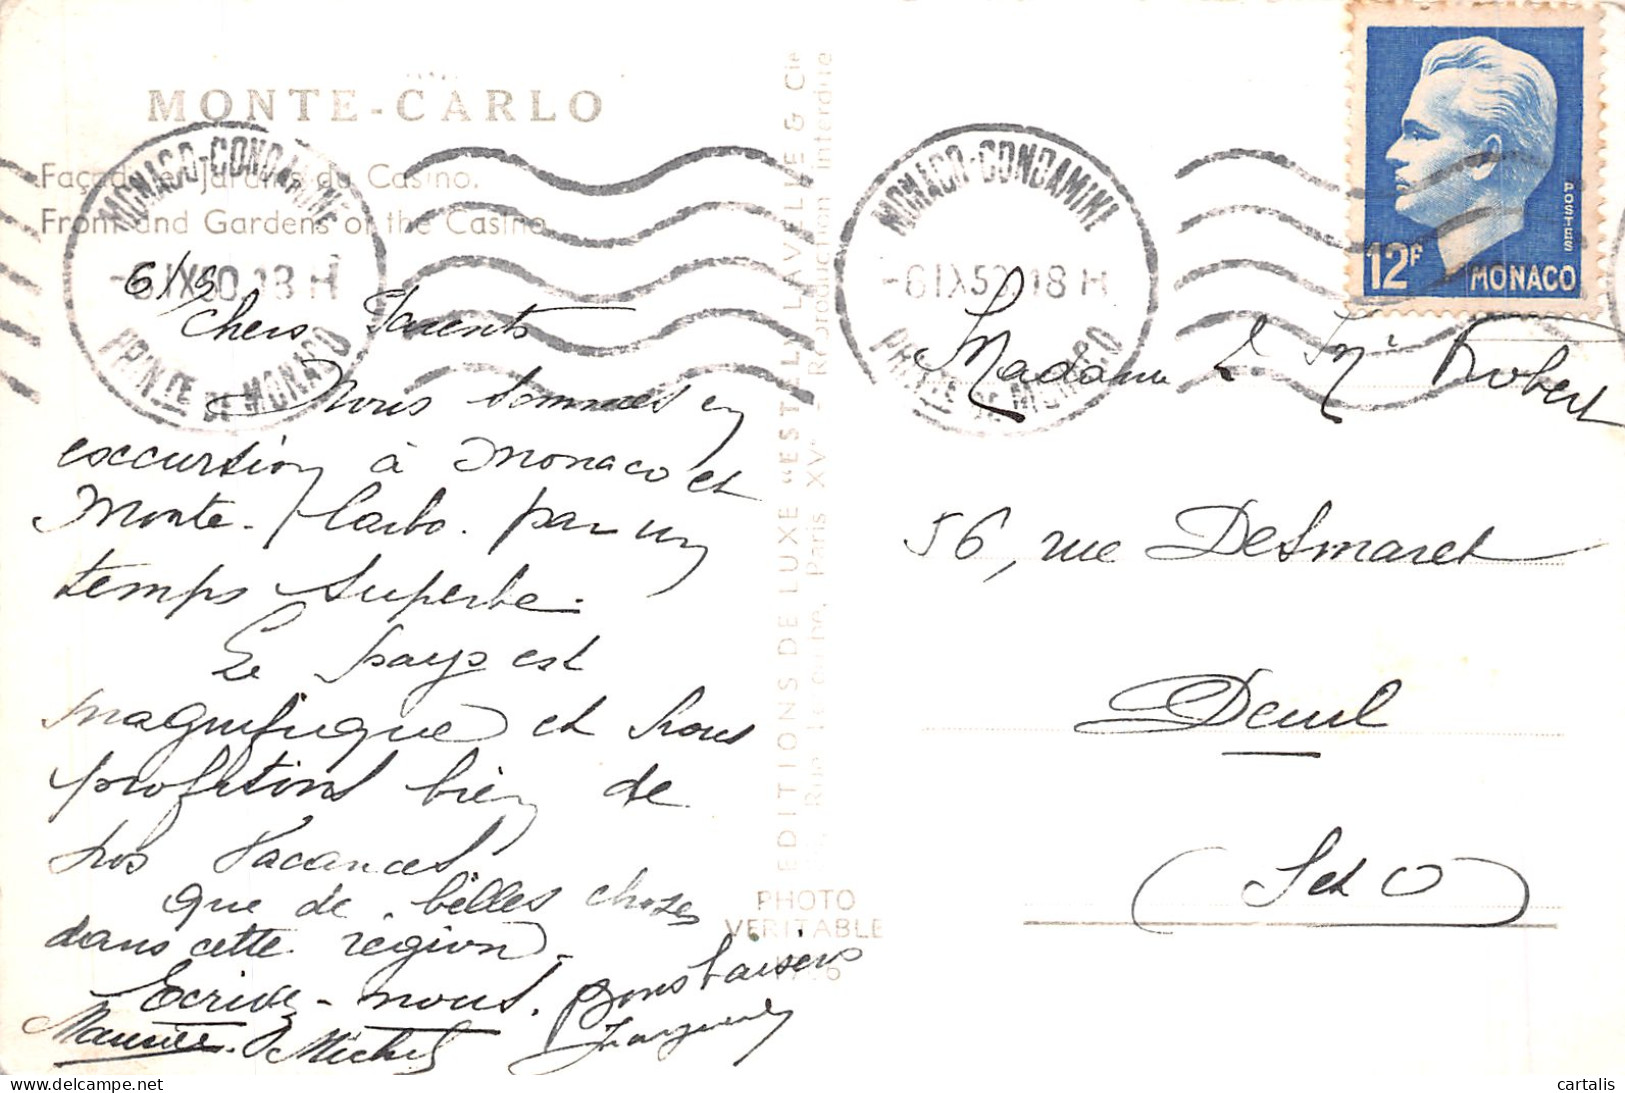 MONTE-CARLO
Façade et Jardins du Casino.
Front and Gardens of the Casino.
MONACO-CONDAMINE
-6 IX 50 18 H
PRINCTE DE MONACO
6/9
Chers Parents
Nous sommes en
excursion à Monaco et
Monte-Carlo. par un
temps superbe.
Le pays est
magnifique et nous
profitons bien de
nos Vacances
que de belles choses
dans cette région.
Ecrivez-nous. Bons baisers
Maurice. Michel
EDITIONS DE LUXE "EST" L. LAVELLE & Cie
Paris XVe - Reproduction interdite
PHOTO
VERITABLE
MONACO-CONDAMINE
-6 IX 50 18 H
PRINCTE DE MONACO
POSTES
12F
MONACO
Madame & Mr Robert
56, rue Desmaret
Deuil
(S et O)
delcampe.net
cartalis